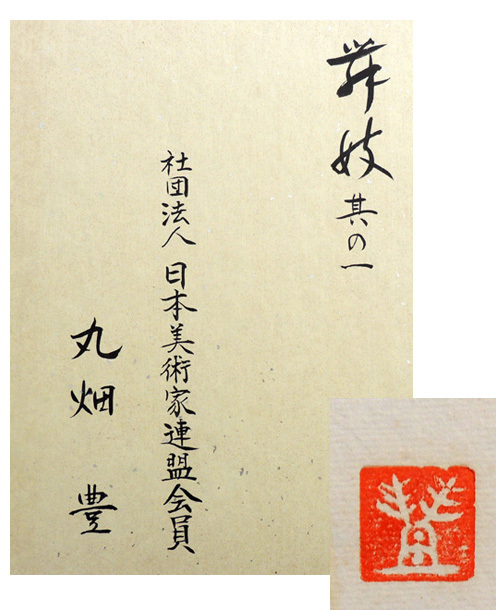 舞妓 其の一
社団法人 日本美術家連盟会員
丸畑 豊
豊